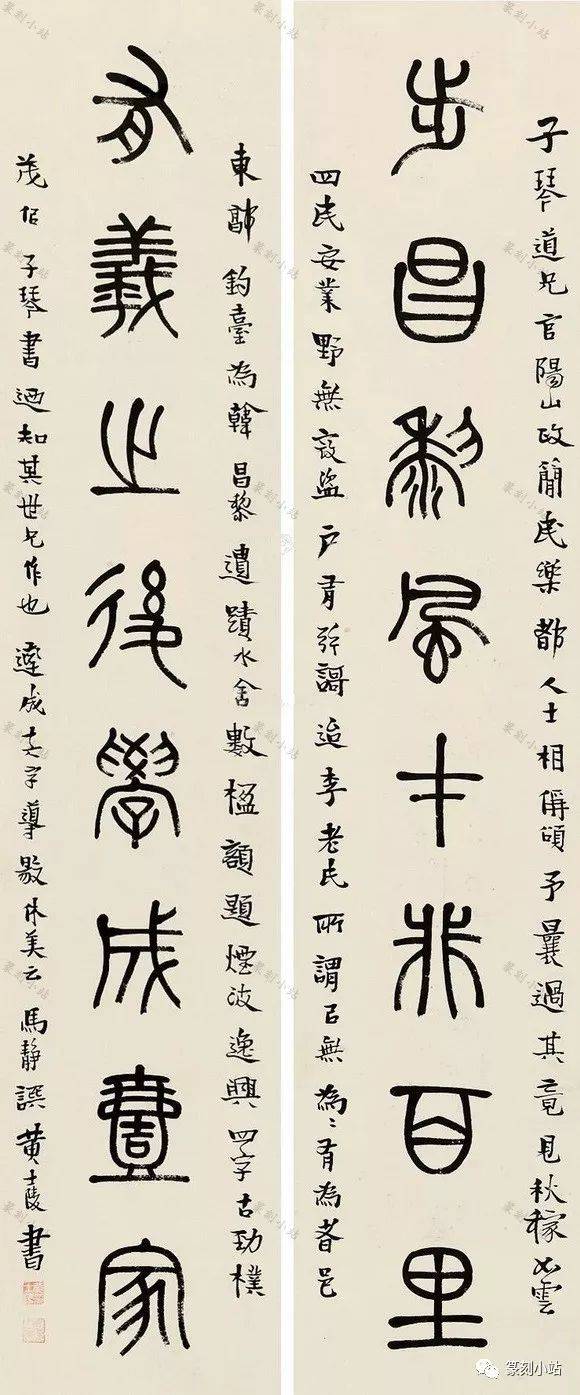 步昌黎風才非百里
子琴道兄官陽山政簡民樂都人士相偁頌予曩過其竟見秋稼如雲
四民安業野無寇盜戶有絃謌迨李老氏所謂以無為〻有為者邑
有羲之後學成畫家
東鄙釣臺為韓昌黎遺蹟水舍數楹額題煙波逸興四字古勁樸
茂佀子琴書迺知其世兄作也遂成十六字導敭休美云馬靜譔黃士陵書
篆刻小站